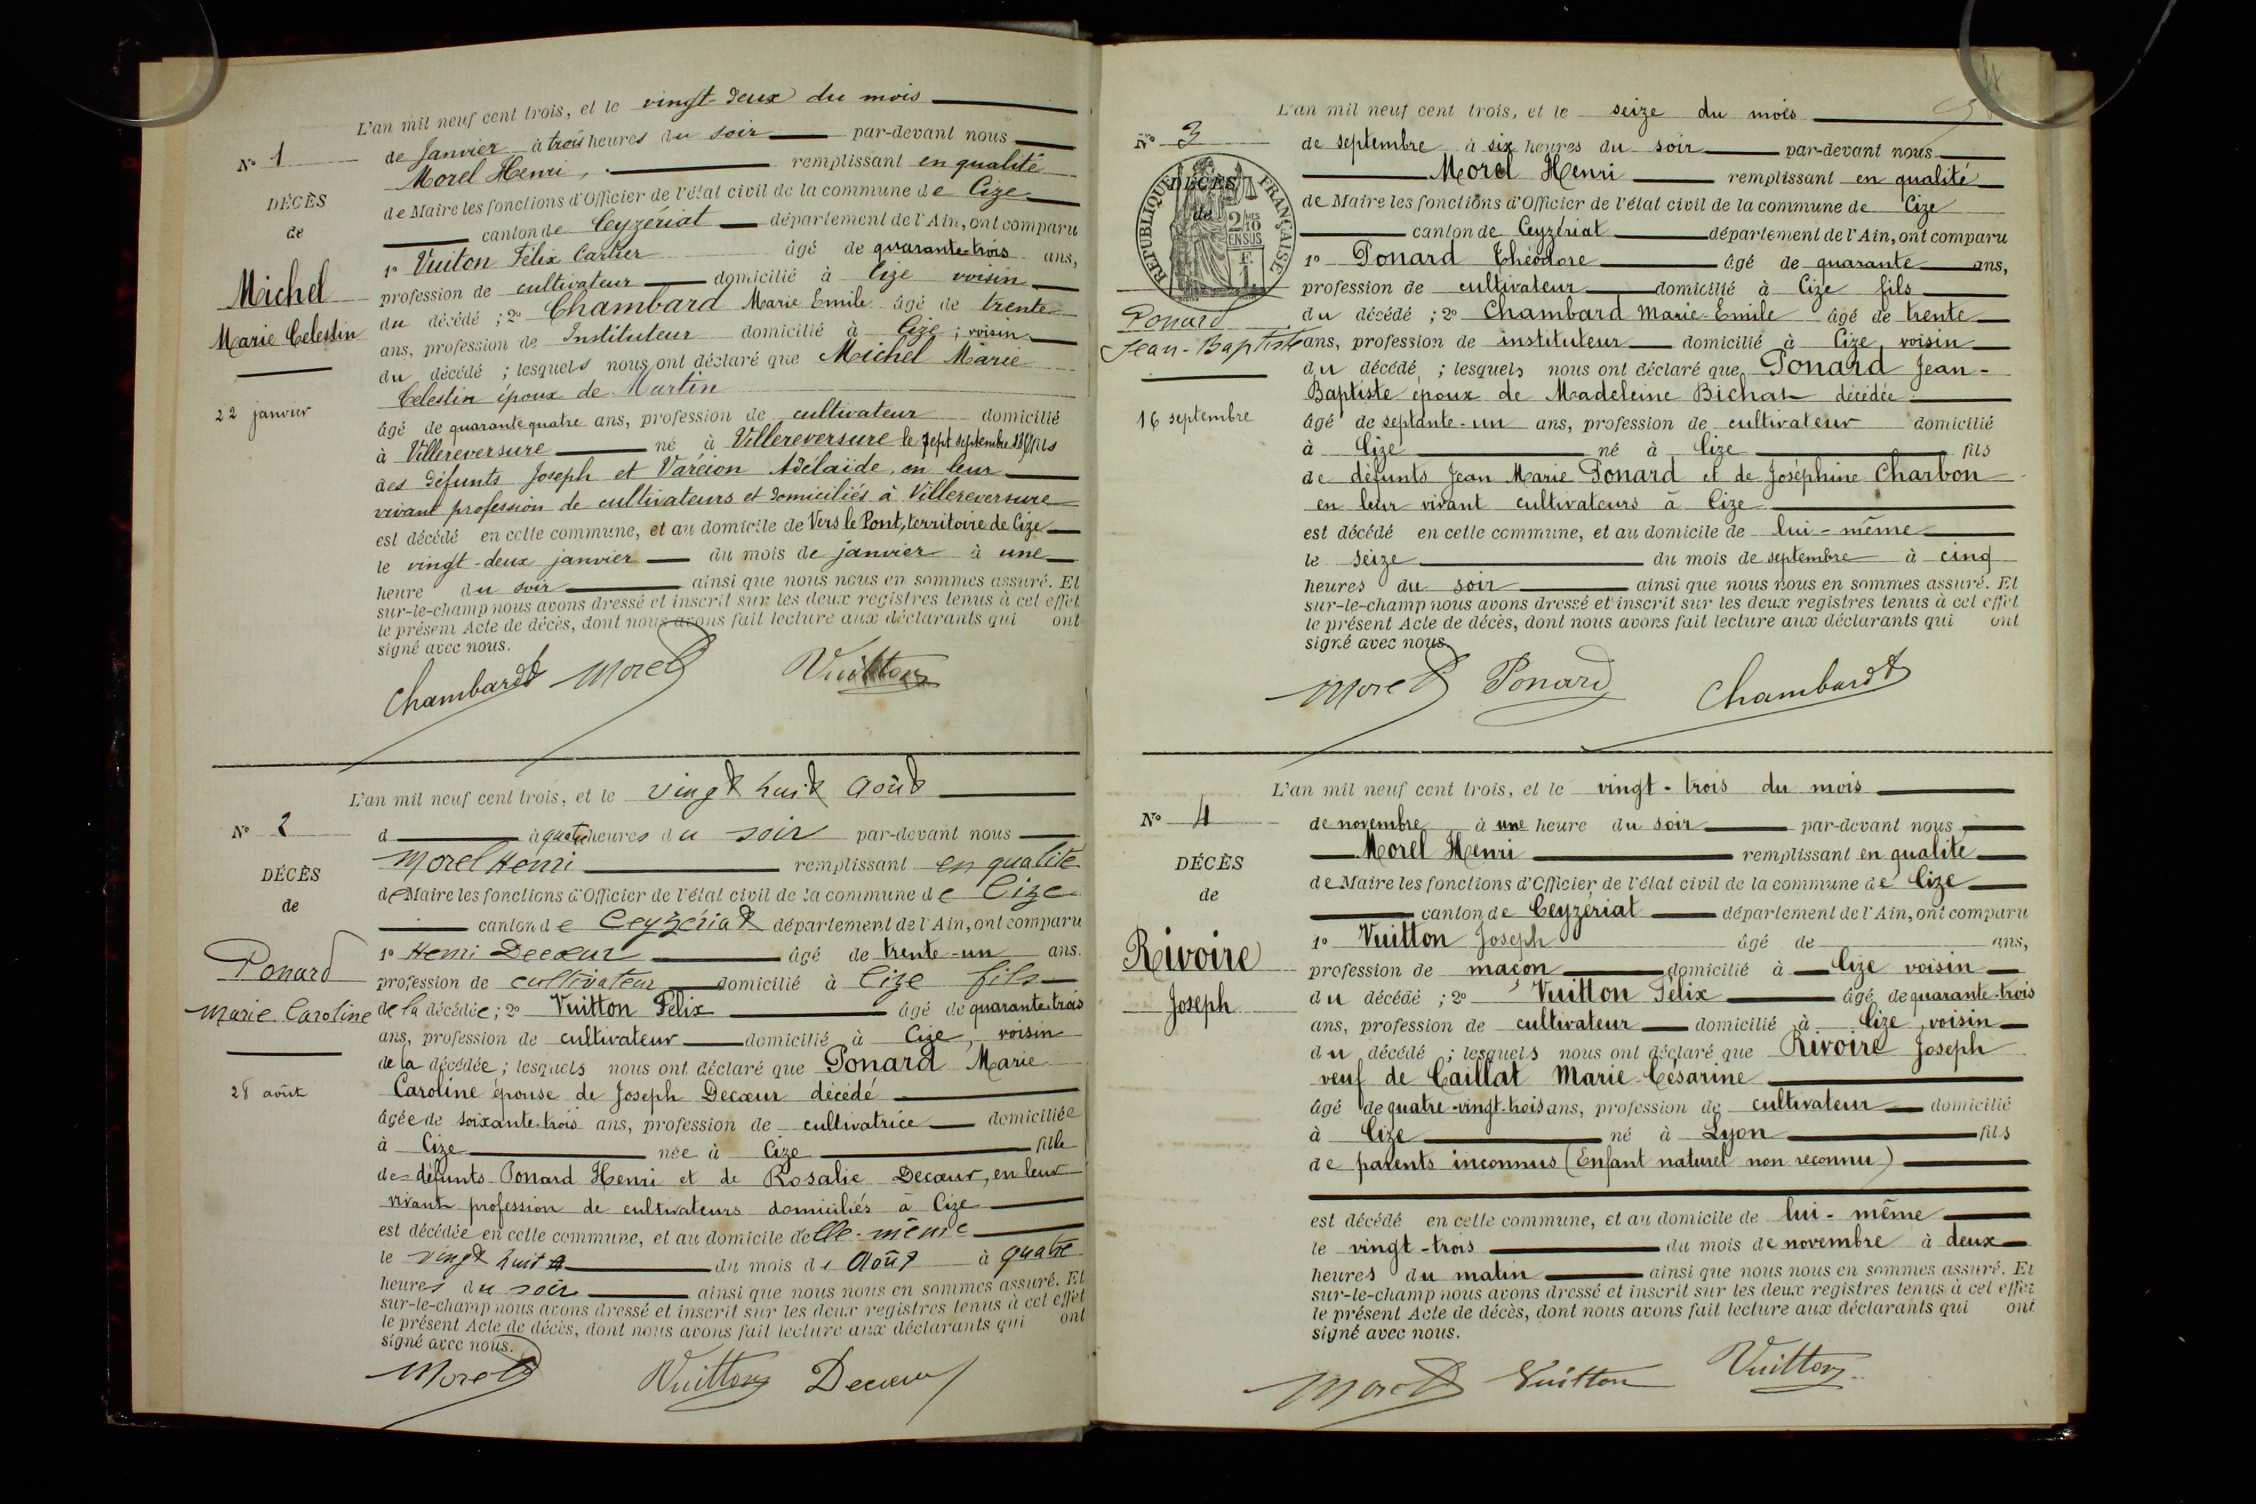 L'an mil neuf cent trois, et le vingt-deux du mois
N° 1
de Janvier à trois heures du soir par-devant nous
Morel Henri, remplissant en qualité
DÉCÈS
de Maire les fonctions d'Officier de l'état civil de la commune de Cize
de
canton de Ceyzériat département de l'Ain, ont comparu
1° Vuiton Félix Cartier âgé de quarante-trois ans,
Michel
profession de cultivateur domicilié à Cize voisin
Marie Celestin
du décédé ; 2° Chambard Marie Emile âgé de trente
ans, profession de Instituteur domicilié à Cize ; voisin
du décédé ; lesquels nous ont déclaré que Michel Marie
Celestin époux de Martin
22 janvier
âgé de quarante quatre ans, profession de cultivateur domicilié
à Villereversure né à Villereversure le sept septembre fils
des défunts Joseph et Varéion Adélaïde, en leur
vivant profession de cultivateurs et domiciliés à Villereversure
est décédé en cette commune, et au domicile de Vers le Pont, territoire de Cize
le vingt-deux janvier du mois de janvier à une
heure du soir ainsi que nous nous en sommes assuré. Et
sur-le-champ nous avons dressé et inscrit sur les deux registres tenus à cet effet
le présent Acte de décès, dont nous avons fait lecture aux déclarants qui ont
signé avec nous.
Chambard Morel Vuitton
L'an mil neuf cent trois, et le vingt huit Août
N° 2
d à quatre heures du soir par-devant nous
Morel Henri remplissant en qualité
DÉCÈS
de Maire les fonctions d'Officier de l'état civil de la commune de Cize
de
canton de Ceyzériat département de l'Ain, ont comparu
1° Henri Decœur âgé de trente-un ans.
Ponard
profession de cultivateur domicilié à Cize fils
Marie Caroline
de la décédée ; 2° Vuitton Félix âgé de quarante-trois
ans, profession de cultivateur domicilié à Cize, voisin
de la décédée ; lesquels nous ont déclaré que Ponard Marie
28 août
Caroline épouse de Joseph Decœur décédé
âgée de soixante-trois ans, profession de cultivatrice domiciliée
à Cize née à Cize fille
des défunts Ponard Henri et de Rosalie Decœur, en leur
vivant profession de cultivateurs domiciliés à Cize
est décédée en cette commune, et au domicile d'elle-même
le vingt huit du mois de Août à quatre
heures du soir ainsi que nous nous en sommes assuré. Et
sur-le-champ nous avons dressé et inscrit sur les deux registres tenus à cet effet
le présent Acte de décès, dont nous avons fait lecture aux déclarants qui ont
signé avec nous.
Morel Vuitton Decœur
L'an mil neuf cent trois, et le seize du mois
N° 3
de septembre à six heures du soir par-devant nous
Morel Henri remplissant en qualité
DÉCÈS
de
RÉPUBLIQUE FRANÇAISE
2/10 EN SUS
F. 1.
de Maire les fonctions d'Officier de l'état civil de la commune de Cize
canton de Ceyzériat département de l'Ain, ont comparu
1° Ponard Théodore âgé de quarante ans,
profession de cultivateur domicilié à Cize fils
Ponard
du décédé ; 2° Chambard Marie-Emile âgé de trente
Jean-Baptiste
ans, profession de instituteur domicilié à Cize, voisin
du décédé ; lesquels nous ont déclaré que Ponard Jean-
Baptiste époux de Madeleine Bichat décédée
16 septembre
âgé de septante-un ans, profession de cultivateur domicilié
à Cize né à Cize fils
de défunts Jean Marie Ponard et de Joséphine Charbon
en leur vivant cultivateurs à Cize
est décédé en cette commune, et au domicile de lui-même
le seize du mois de septembre à cinq
heures du soir ainsi que nous nous en sommes assuré. Et
sur-le-champ nous avons dressé et inscrit sur les deux registres tenus à cet effet
le présent Acte de décès, dont nous avons fait lecture aux déclarants qui ont
signé avec nous
Morel Ponard Chambard
L'an mil neuf cent trois, et le vingt-trois du mois
N° 4
de novembre à une heure du soir par-devant nous
Morel Henri remplissant en qualité
DÉCÈS
de Maire les fonctions d'Officier de l'état civil de la commune de Cize
de
canton de Ceyzériat département de l'Ain, ont comparu
1° Vuitton Joseph âgé de ans,
Rivoire
profession de maçon domicilié à Cize voisin
Joseph
du décédé ; 2° Vuitton Félix âgé de quarante-trois
ans, profession de cultivateur domicilié à Cize, voisin
du décédé ; lesquels nous ont déclaré que Rivoire Joseph
veuf de Caillat Marie-Césarine
âgé de quatre-vingt-trois ans, profession de cultivateur domicilié
à Cize né à Lyon fils
de parents inconnus (Enfant naturel non reconnu)
est décédé en cette commune, et au domicile de lui-même
le vingt-trois du mois de novembre à deux
heures du matin ainsi que nous nous en sommes assuré. Et
sur-le-champ nous avons dressé et inscrit sur les deux registres tenus à cet effet
le présent Acte de décès, dont nous avons fait lecture aux déclarants qui ont
signé avec nous.
Morel Vuitton Vuitton